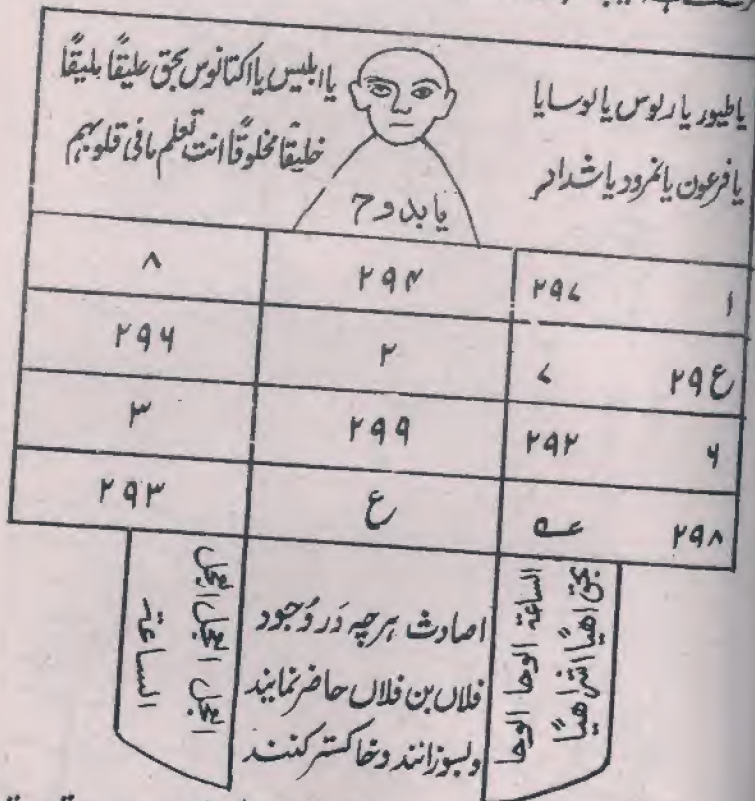 یاطیور یا رلوس یا لوسایا
یا فرعون یا نمرود یا شداد
یا ابلیس یا اکتانوس بحق علیقًا بلیقًا
خلیقًا مخلوقًا انت تعلم مافی قلوبہم
یا بدوح
ا ۲۹۷ ۲۹۴ ۸
۲۹ع ۷ ۲ ۲۹۶
۶ ۲۹۲ ۲۹۹ ۳
۲۹۸ ع ۲۹۳
بحق اھیًا اشراھیًا
الساعة الوحا الوحا
اصادث ہرچہ دَر وُجود
فلاں بن فلاں حاضر نمایند
وبسوزانند وخاکستر کنند
العجل العجل العجل
الساعة